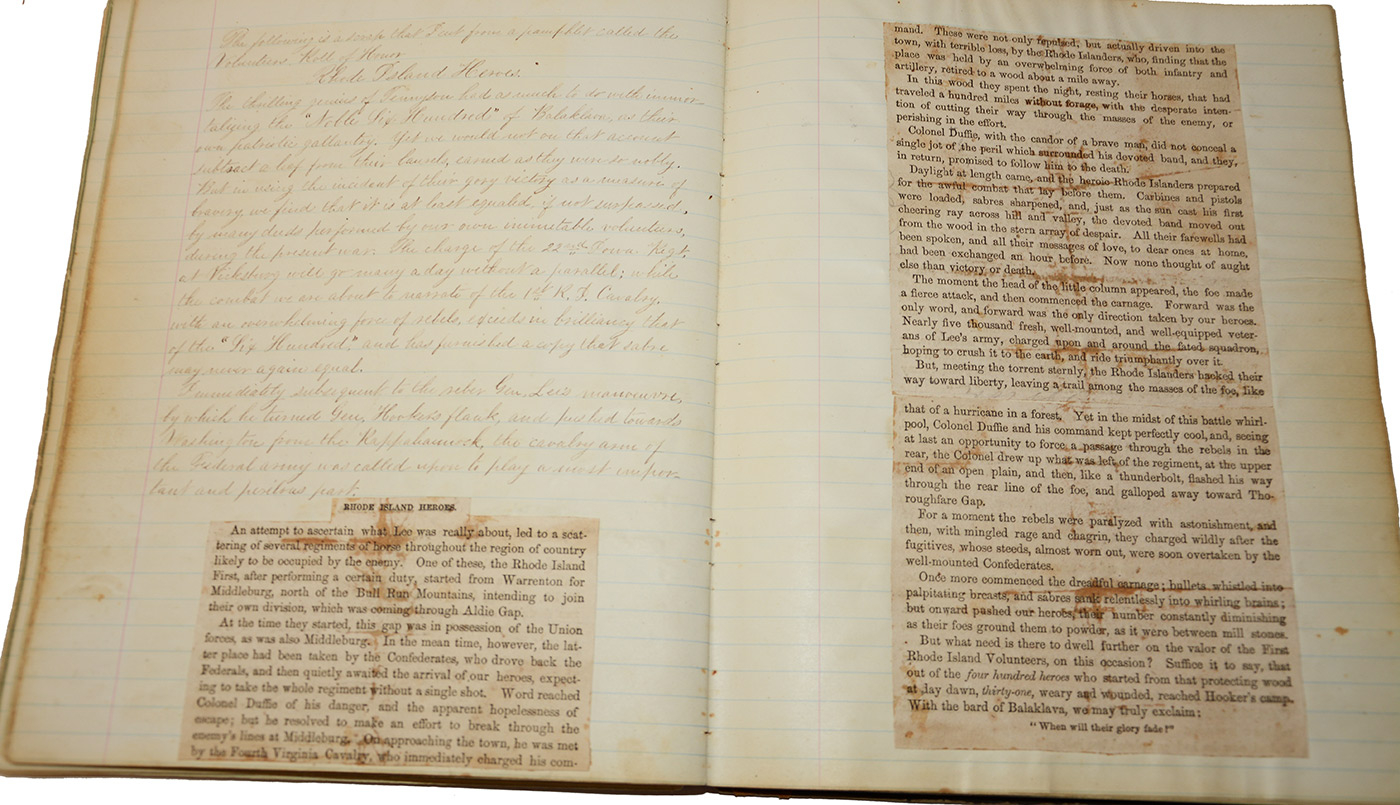 The following is a scrap that I cut from a pamphlet called the
Volunteers Roll of Honor.
Rhode Island Heroes.
The thrilling genius of Tennyson had as much to do with immor-
talizing the "Noble Six Hundred" of Balaklava, as their
own patriotic gallantry. Yet we would not on that account
subtract a leaf from their laurels, earned as they were so nobly.
But in using the incident of their gory victory as a measure of
bravery, we find that it is at least equaled, if not surpassed,
by many deeds performed by our own inimitable volunteers,
during the present war. The charge of the 22nd Iowa Regt.
at Vicksburg will go many a day without a parallel; while
the combat we are about to narrate of the 1st R. I. Cavalry,
with an overwhelming force of rebels, exceeds in brilliancy that
of the "Six Hundred" and has furnished a copy that sabre
may never again equal.
Immediatly subsequent to the Gen. Lees manouvre,
by which he turned Gen. Hookers flank, and pushed towards
Washington from the Rappahannock, the cavalry arm of
the Federal army was called upon to play a most impor-
tant and perilous part.
RHODE ISLAND HEROES.
An attempt to ascertain what Lee was really about, led to a scat-
tering of several regiments of horse throughout the region of country
likely to be occupied by the enemy. One of these, the Rhode Island
First, after performing a certain duty, started from Warrenton for
Middleburg, north of the Bull Run Mountains, intending to join
their own division, which was coming through Aldie Gap.
At the time they started, this gap was in possession of the Union
forces, as was also Middleburg. In the mean time, however, the lat-
ter place had been taken by the Confederates, who drove back the
Federals, and then quietly awaited the arrival of our heroes, expect-
ing to take the whole regiment without a single shot. Word reached
Colonel Duffie of his danger, and the apparent hopelessness of
escape; but he resolved to make an effort to break through the
enemy's lines at Middleburg. On approaching the town, he was met
by the Fourth Virginia Cavalry, who immediately charged his com-
mand. These were not only repulsed, but actually driven into the
town, with terrible loss, by the Rhode Islanders, who, finding that the
place was held by an overwhelming force of both infantry and
artillery, retired to a wood about a mile away.
In this wood they spent the night, resting their horses, that had
traveled a hundred miles without forage, with the desperate inten-
tion of cutting their way through the masses of the enemy, or
perishing in the effort.
Colonel Duffie, with the candor of a brave man, did not conceal a
single jot of the peril which surrounded his devoted band, and they,
in return, promised to follow him to the death.
Daylight at length came, and the heroic Rhode Islanders prepared
for the awful combat that lay before them. Carbines and pistols
were loaded, sabres sharpened, and, just as the sun cast his first
cheering ray across hill and valley, the devoted band moved out
from the wood in the stern array of despair. All their farewells had
been spoken, and all their messages of love, to dear ones at home,
had been exchanged an hour before. Now none thought of aught
else than victory or death.
The moment the head of the little column appeared, the foe made
a fierce attack, and then commenced the carnage. Forward was the
only word, and forward was the only direction taken by our heroes.
Nearly five thousand fresh, well-mounted, and well-equipped veter-
ans of Lee's army, charged upon and around the fated squadron,
hoping to crush it to the earth, and ride triumphantly over it.
But, meeting the torrent sternly, the Rhode Islanders hacked their
way toward liberty, leaving a trail among the masses of the foe, like
that of a hurricane in a forest. Yet in the midst of this battle whirl-
pool, Colonel Duffie and his command kept perfectly cool, and, seeing
at last an opportunity to force a passage through the rebels in the
rear, the Colonel drew up what was left of the regiment, at the upper
end of an open plain, and then, like a thunderbolt, flashed his way
through the rear line of the foe, and galloped away toward Tho-
roughfare Gap.
For a moment the rebels were paralyzed with astonishment, and
then, with mingled rage and chagrin, they charged wildly after the
fugitives, whose steeds, almost worn out, were soon overtaken by the
well-mounted Confederates.
Once more commenced the dreadful carnage; bullets whistled into
palpitating breasts, and sabres sank relentlessly into whirling brains;
but onward pushed our heroes, their number constantly diminishing
as their foes ground them to powder, as it were between mill stones.
But what need is there to dwell further on the valor of the First
Rhode Island Volunteers, on this occasion? Suffice it to say, that
out of the four hundred heroes who started from that protecting wood
at day dawn, thirty-one, weary and wounded, reached Hooker's camp.
With the bard of Balaklava, we may truly exclaim:
"When will their glory fade!"